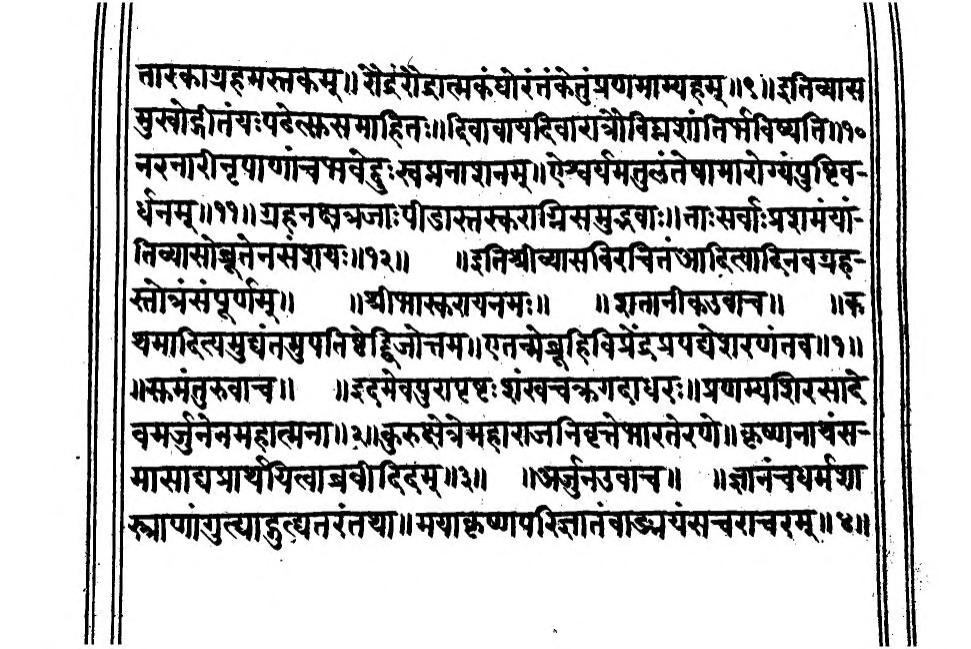 तारकाग्रहमस्तकम्॥ रौद्रंरौद्रात्मकंघोरंतंकेतुंप्रणमाम्यहम्॥९॥इतिव्यास
मुखोद्गीतंयःपठेत्सुसमाहितः॥दिवावायदिवारात्रौविघ्नशांतिर्भविष्यति॥१०
नरनारीनृपाणांचभवेद्दुःस्वप्ननाशनम्॥ऐश्वर्यमतुलंतेषामारोग्यंपुष्टिव-
र्धनम्॥११॥ग्रहनक्षत्रजाःपीडास्तस्कराग्निसमुद्भवाः॥ताःसर्वाःप्रशमंयां-
तिव्यासोब्रूतेनसंशयः॥१२॥ ॥इतिश्रीव्यासविरचितंआदित्यादिनवग्रह-
स्तोत्रंसंपूर्णम्॥ ॥श्रीभास्करायनमः॥ ॥शतानीकउवाच॥ ॥क
थमादित्यमुद्यंतमुपतिष्ठेद्द्विजोत्तम॥एतन्मेब्रूहिविप्रेंद्रप्रपद्येशरणंतव॥१॥
॥सुमंतुरुवाच॥ ॥इदमेवपुरापृष्टःशंखचक्रगदाधरः॥प्रणम्यशिरसादे
वमर्जुनेनमहात्मना॥२॥कुरुक्षेत्रेमहाराजनिवृत्तेभारतेरणे॥कृष्णनाथंस-
मासाद्यप्रार्थयित्वाब्रवीदिदम्॥३॥ ॥अर्जुनउवाच॥ ॥ज्ञानंचधर्मशा
स्त्राणांगुत्याद्गुत्यतरंतथा॥मयाकृष्णपरिज्ञातंवाङ्मयंसचराचरम्॥४॥